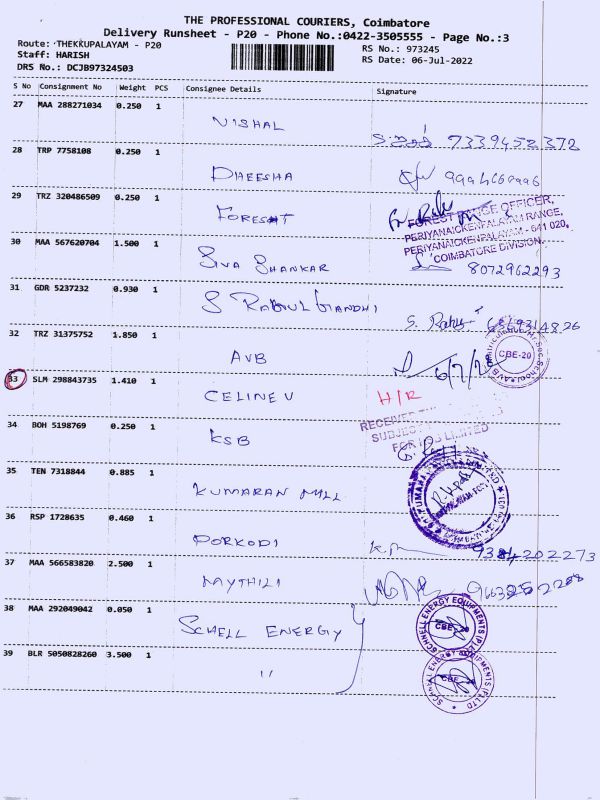 THE PROFESSIONAL COURIERS, Coimbatore
Delivery Runsheet - P20 - Phone No.:0422-3505555 - Page No.:3
Route: THEKKUPALAYAM - P20
RS No.: 973245
Staff: HARISH
RS Date: 06-Jul-2022
DRS No.: DCJB97324503
S No Consignment No Weight PCS Consignee Details Signature
27 MAA 288271034 0.250 1 NISHAL 7339452372
28 TRP 7758108 0.250 1 DHEESHA
29 TRZ 320486509 0.250 1 FOREST
FOREST RANGE OFFICER,
PERIYANAICKENPALAYAM RANGE,
PERIYANAICKENPALAYAM - 641 020,
COIMBATORE DIVISION.
30 MAA 567620704 1.500 1 SIVA SHANKAR 8072962293
31 GDR 5237232 0.930 1 S RAGUL GANDHI S. Rahul
32 TRZ 31375752 1.850 1 AVB 6/7/22
CBE-20
33 SLM 298843735 1.410 1 CELINE V H/R
34 BOH 5198769 0.250 1 KSB
RECEIVED
SUBJECT
LIMITED
35 TEN 7318844 0.885 1 KUMARAN MILL
36 RSP 1728635 0.460 1 PORKODI 9384202273
37 MAA 566583820 2.500 1 MYTHILI
38 MAA 292049042 0.050 1 SCHELL ENERGIY
SCHNELL ENERGY EQUIPMENTS (P) LTD
CBE-20
39 BLR 5050828260 3.500 1 "
SCHNELL ENERGY EQUIPMENTS (P) LTD
CBE-20